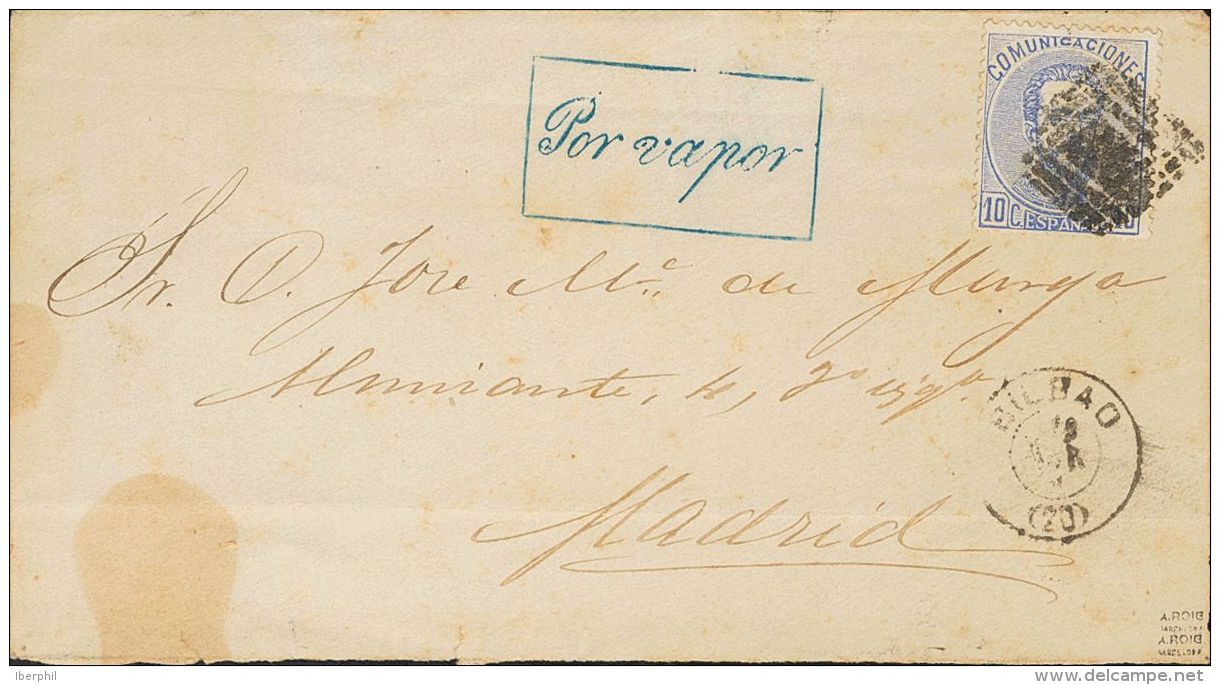 Por vapor
COMUNICACIONES
10 C. ESPAÑA
Sr. D. Jose Mª. de Murga
Almirante, 4, 2º izqª.
BILBAO
(20)
Madrid
A.ROIG
BARCELONA
A.ROIG
BARCELONA
© Iberphil
delcampe.net